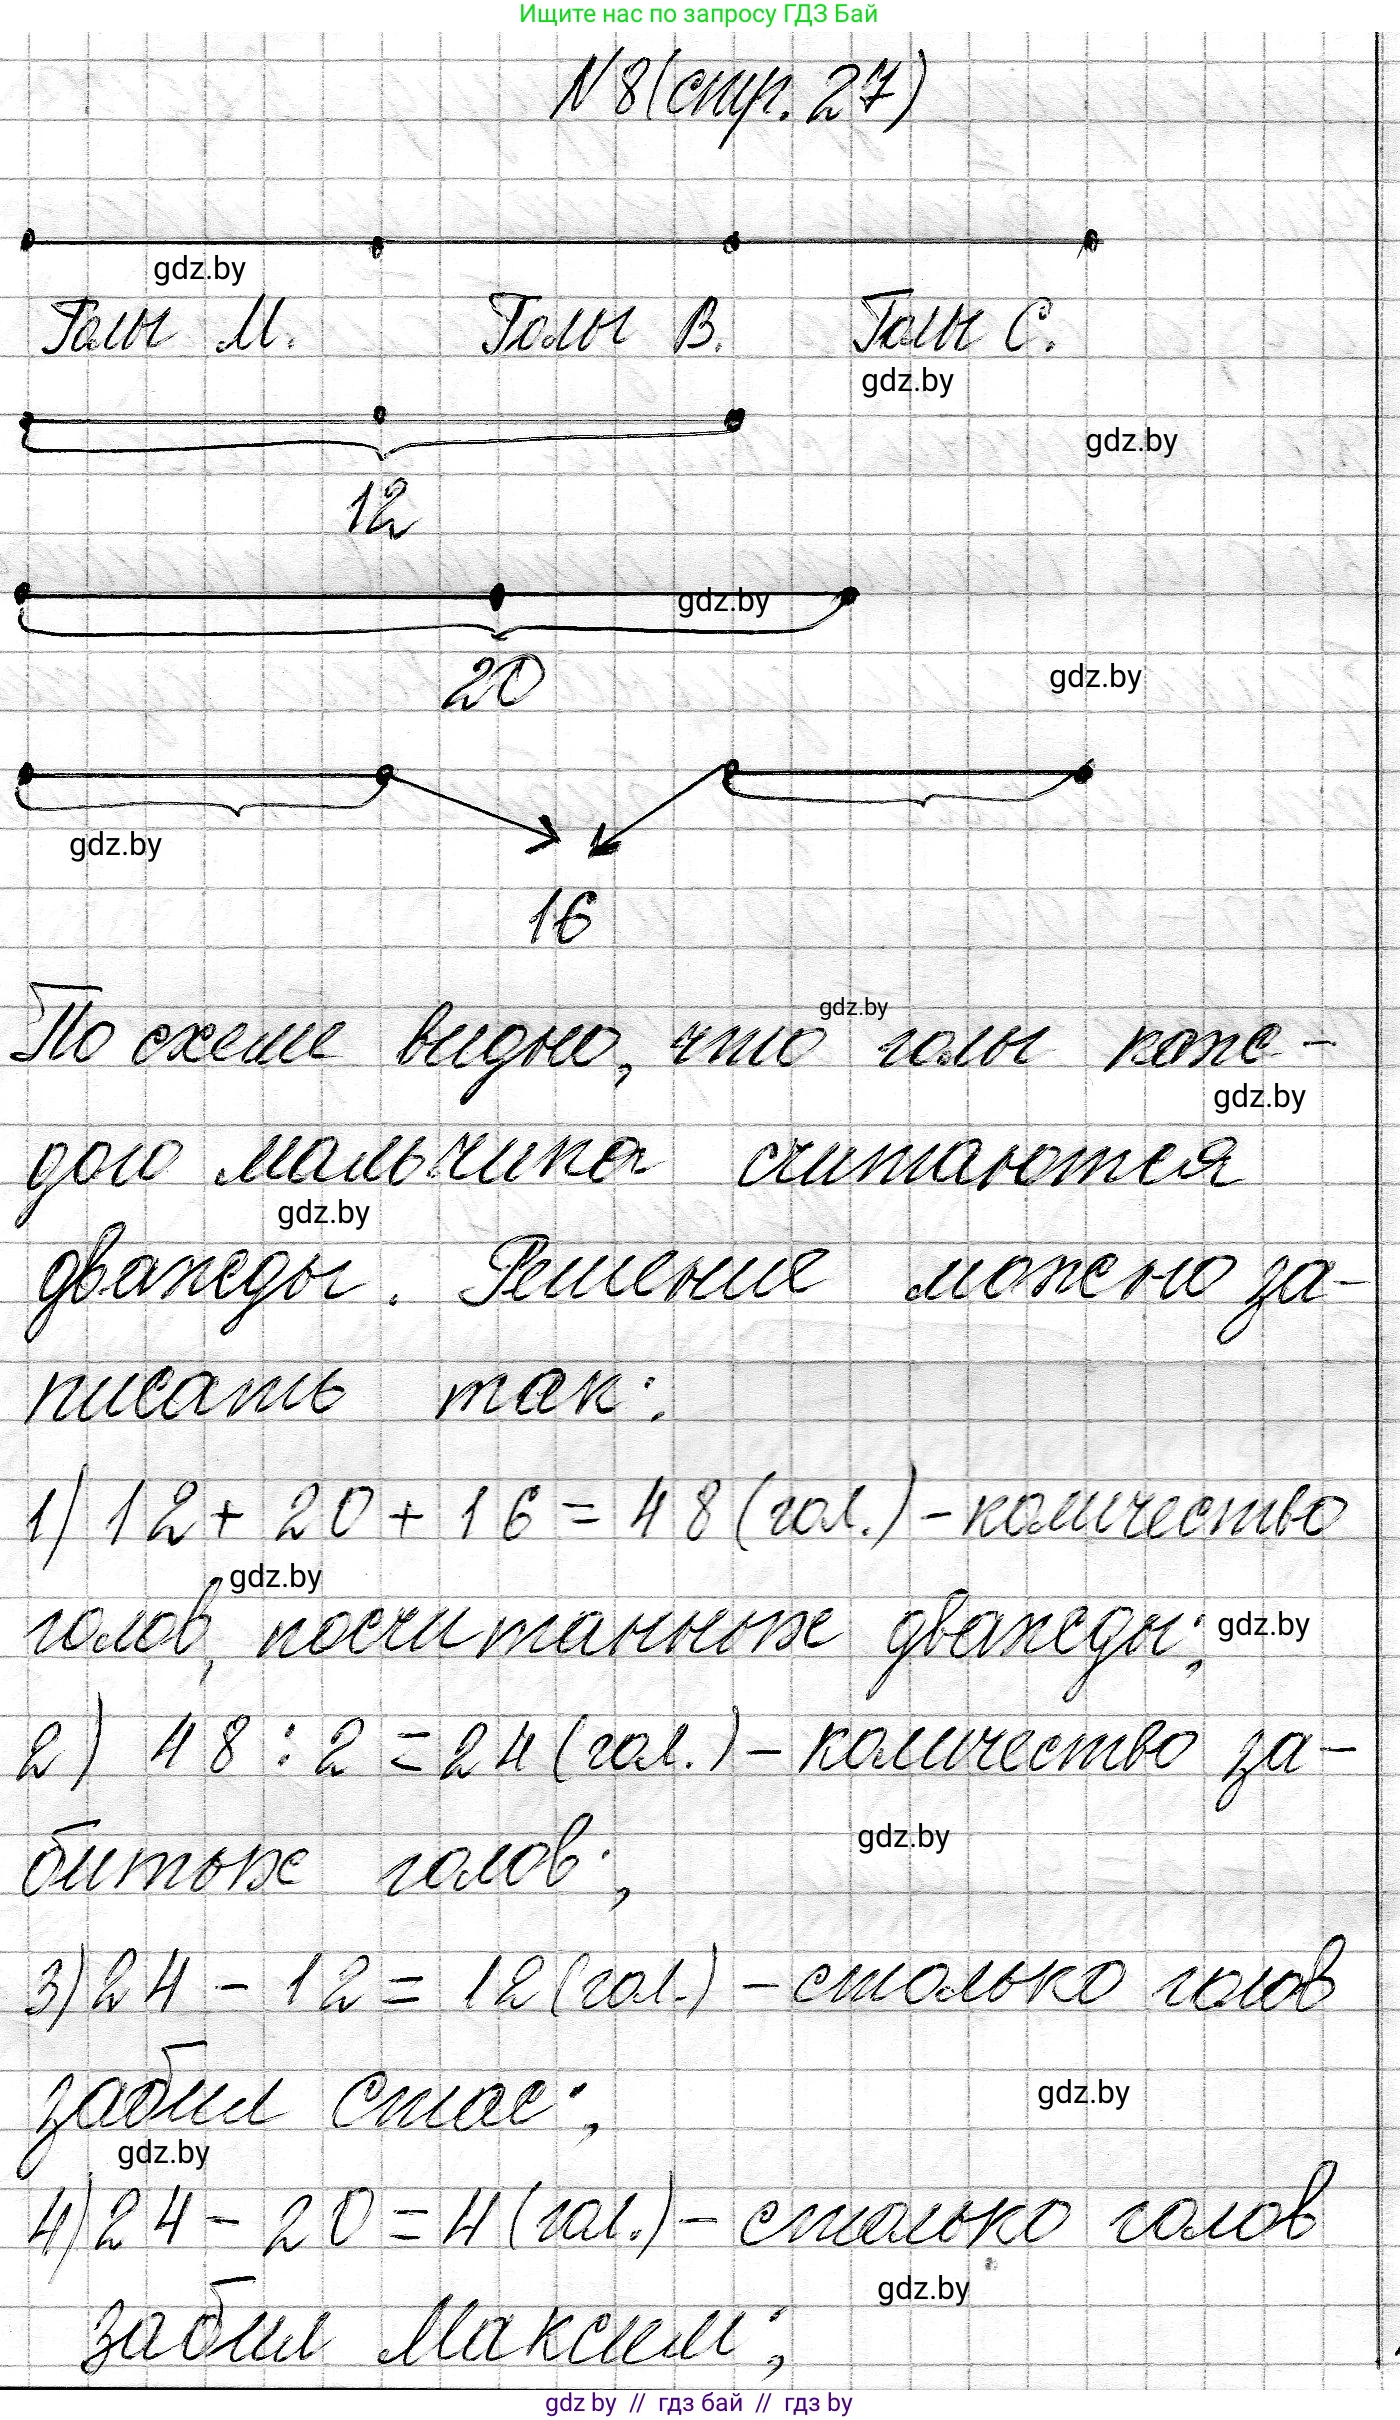 Ищите нас по запросу ГДЗ Бай
N 8 (стр. 27)
gdz.by
Голы М. Голы В. Голы С.
gdz.by
gdz.by
12
gdz.by
20
gdz.by
gdz.by
16
gdz.by
По схеме видно, что голы каж-
gdz.by
дого мальчика считаются
gdz.by
дважды. Решение можно за-
писать так:
1) 12 + 20 + 16 = 48 (гол.) - количество
gdz.by
голов, посчитанных дважды; gdz.by
2) 48 : 2 = 24 (гол.) - количество за-
gdz.by
битых голов;
3) 24 - 12 = 12 (гол.) - столько голов
забил Стас;
gdz.by
gdz.by
4) 24 - 20 = 4 (гол.) - столько голов
gdz.by
забил Максим;
gdz by // гдз бай // гдз by